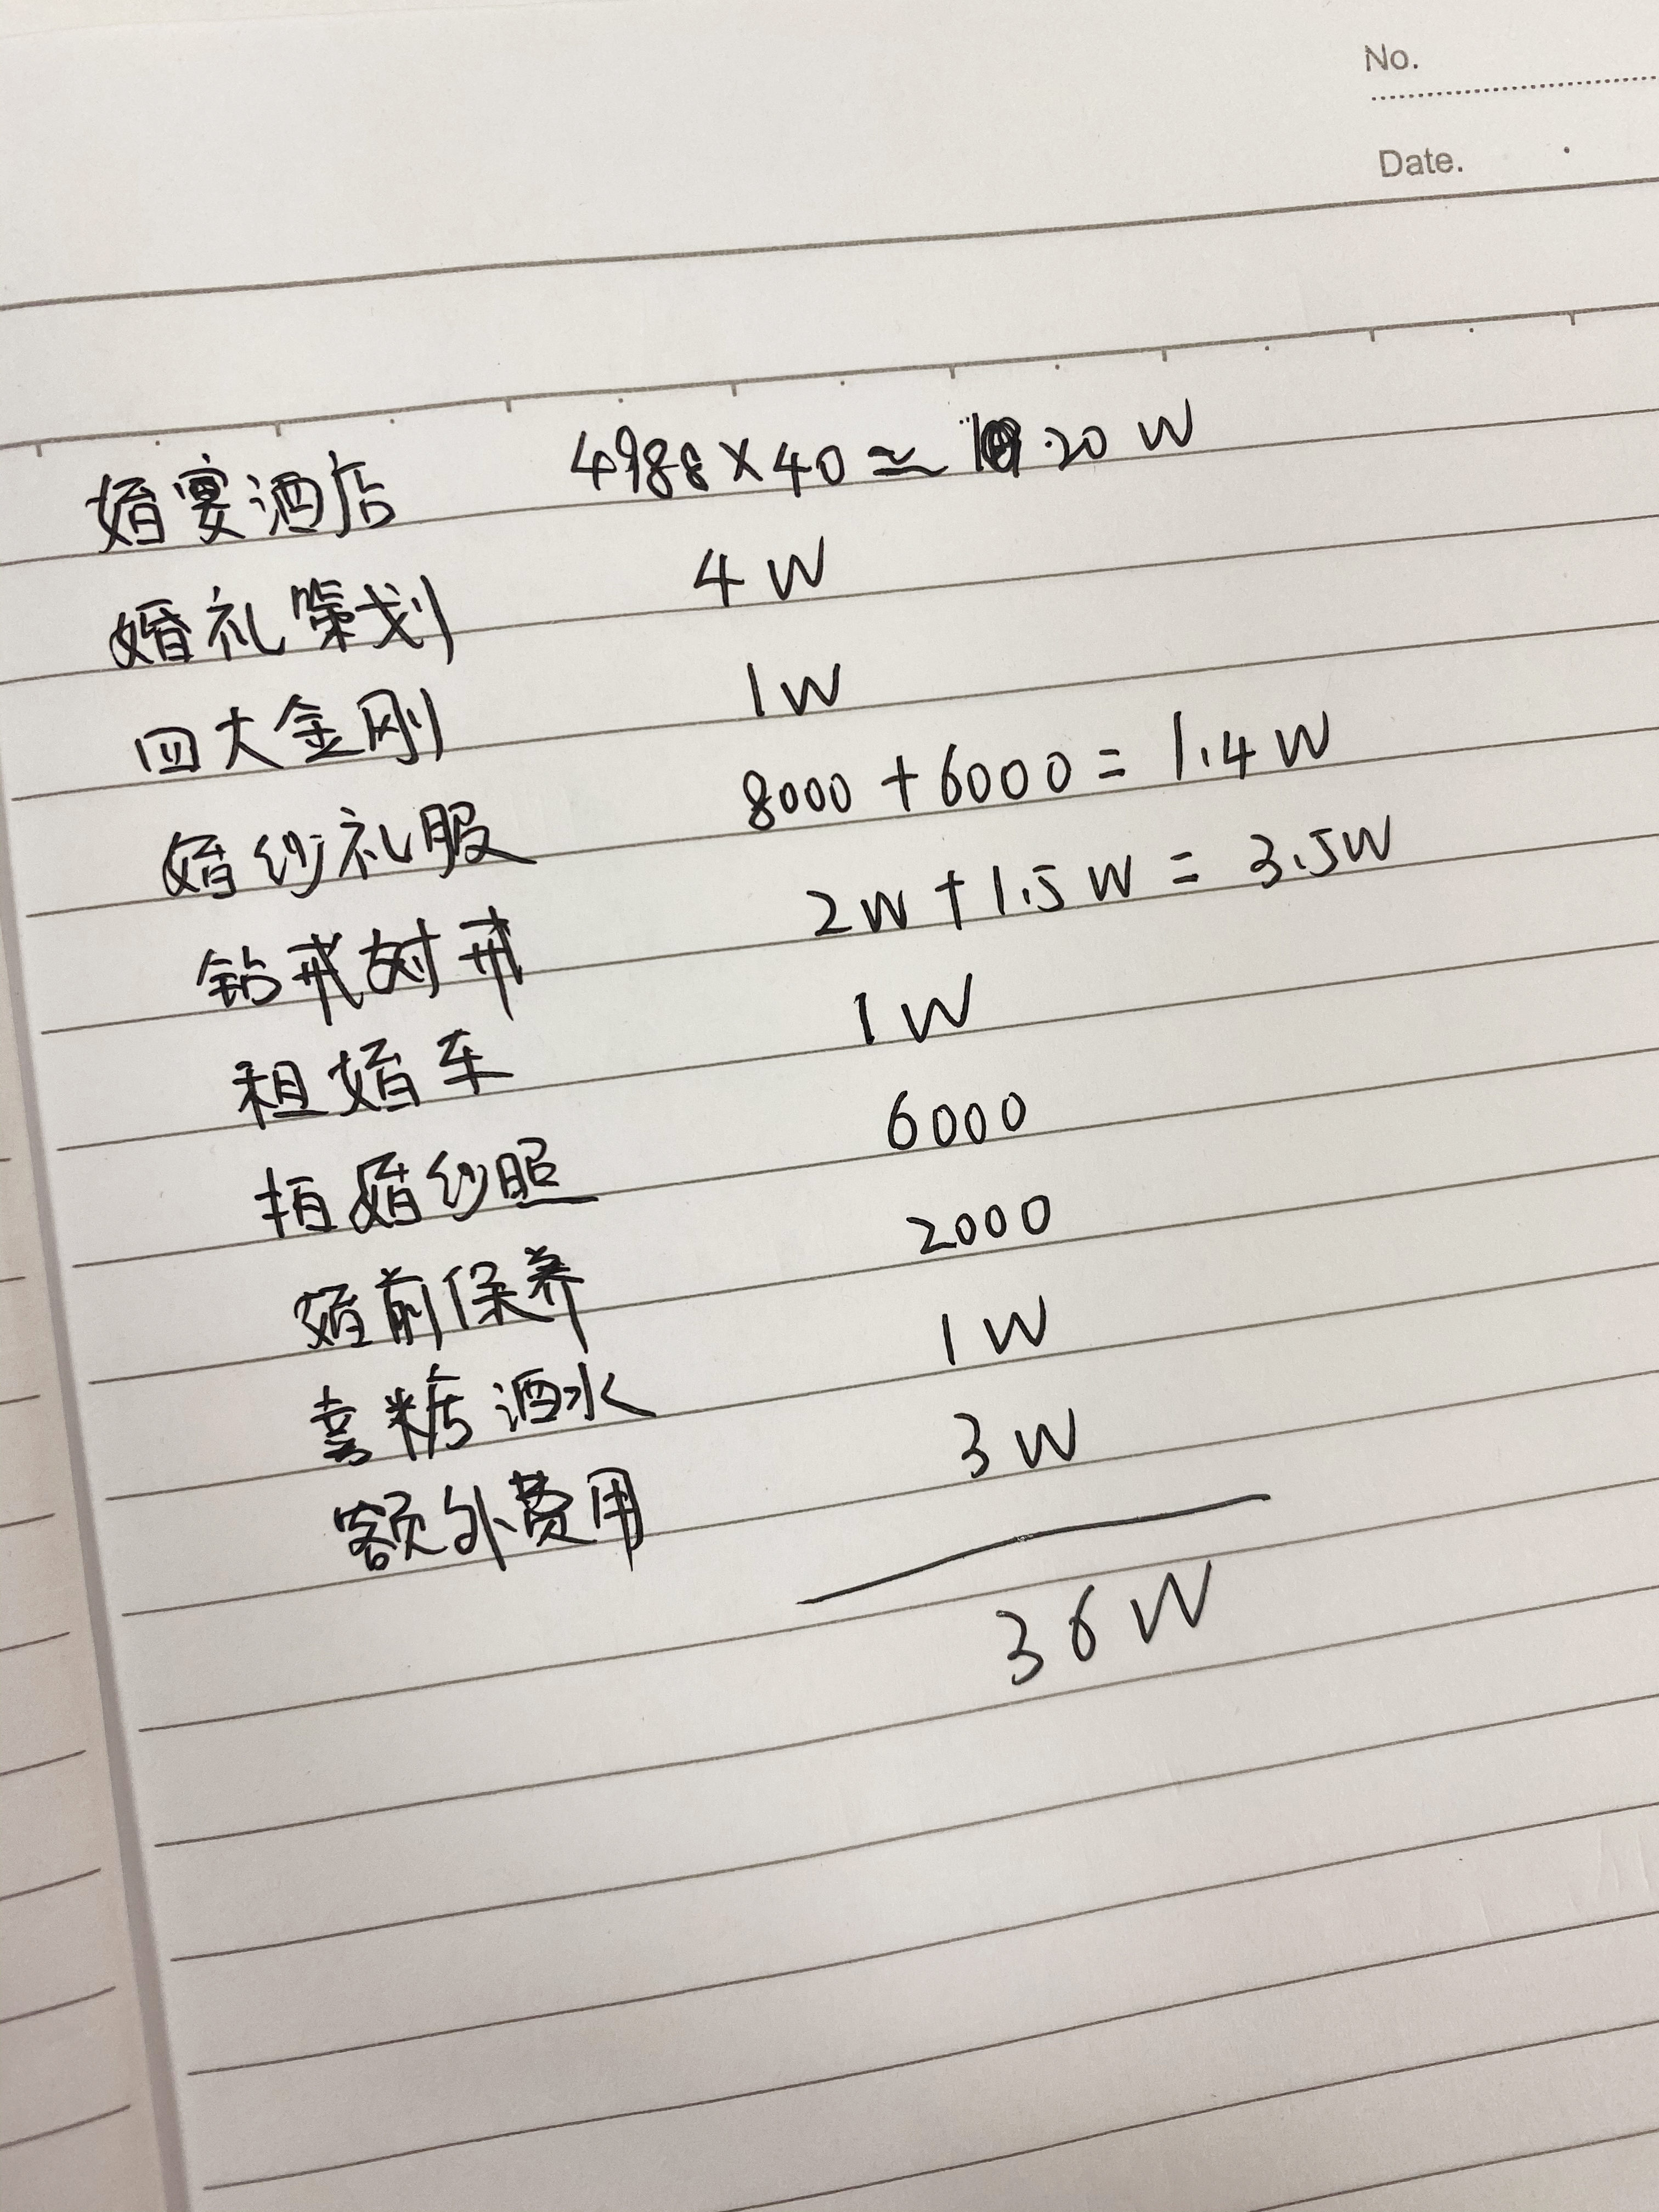 No.
Date.
婚宴酒店 4988×40≃ 20W
婚礼策划 4W
四大金刚 1W
婚纱礼服 8000+6000=1.4W
钻戒对戒 2W+1.5W=3.5W
租婚车 1W
拍婚纱照 6000
婚前保养 2000
喜糖酒水 1W
额外费用 3W
36W